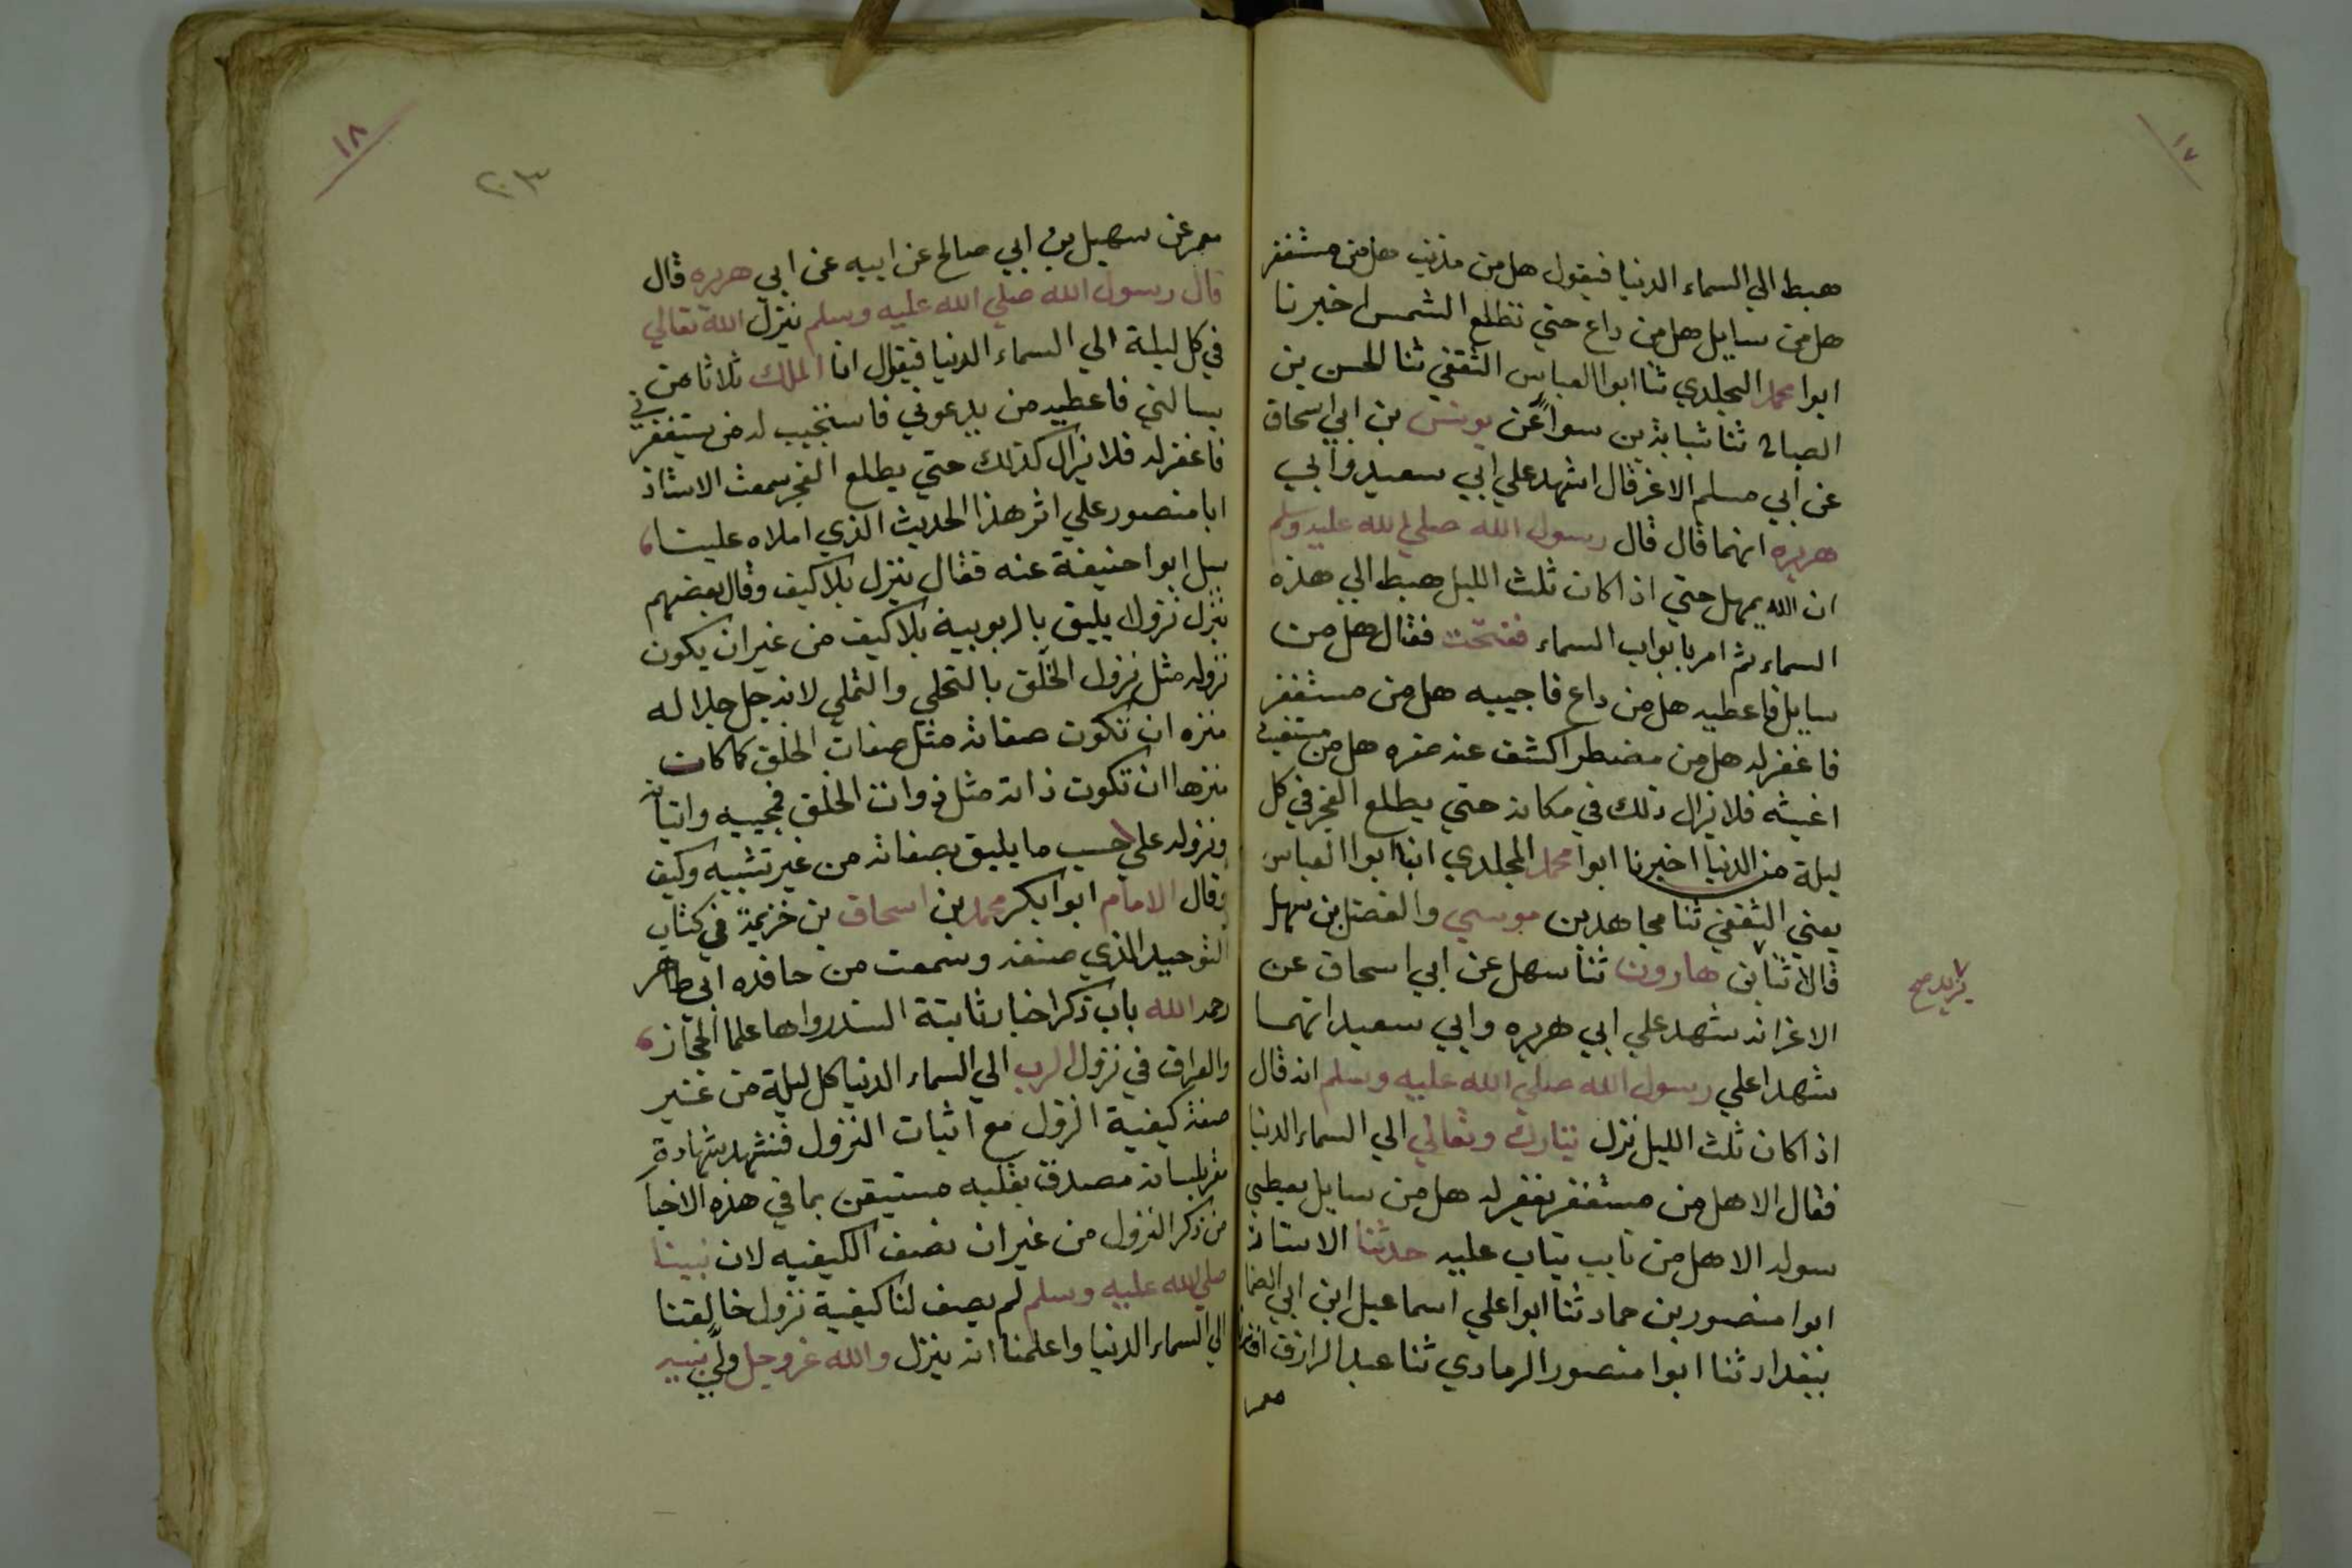 ١٧
هبط الي السماء الدنيا فيقول هل من مذنب هل من مستغفر
هل من سايل هل من داع حتي تطلع الشمس اخبرنا
ابوا محمد المجلدي ثنا ابوا العباس الثقفي ثنا الحسن بن
الصباح ثنا شبابة بن سوار عن يونس بن ابي اسحاق
عن ابي مسلم الاغر قال اشهد علي ابي سعيد وابي
هريره انهما قال قال رسول الله صلي الله عليه وسلم
ان الله يمهل حتي اذا كان ثلث الليل هبط الي هذه
السماء ثم امر بابواب السماء ففتحت فقال هل من
سايل فاعطيه هل من داع فاجيبه هل من مستغفر
فاغفر له هل من مضطر اكشف عنه ضره هل من مستغيث
اغيثه فلا يزال ذلك في مكانه حتي يطلع الفجر في كل
ليلة من الدنيا اخبرنا ابوا محمد المجلدي انبا ابوا العباس
يعني الثقفي ثنا مجاهد بن موسي والفضل بن سهل
قالا ثنا بن هارون ثنا سهل عن ابي اسحاق عن
يزيد صح
الاغر انه شهد علي ابي هريره وابي سعيد انهما
شهدا علي رسول الله صلي الله عليه وسلم انه قال
اذا كان ثلث الليل نزل تبارك وتعالي الي السماء الدنيا
فقال الا هل من مستغفر يغفر له هل من سايل يعطي
سوله الا هل من تايب يتاب عليه حدثنا الاستاذ
ابوا منصور بن حماد ثنا ابوا علي اسماعيل ابن ابي الضا
ببغداد ثنا ابوا منصور الرمادي ثنا عبد الرازق
معمر
١٨
٢٠٣
معمر عن سهيل بن ابي صالح عن ابيه عن ابي هريره قال
قال رسول الله صلي الله عليه وسلم ينزل الله تعالي
في كل ليلة الي السماء الدنيا فيقول انا الملك ثلاثا من
يسالني فاعطيه من يدعوني فاستجيب له من يستغفرني
فاغفر له فلا يزال كذلك حتي يطلع الفجر سمعت الاستاذ
ابا منصور علي اثر هذا الحديث الذي املاه علينا
سيل ابوا حنيفة عنه فقال ينزل بلا كيف وقال بعضهم
ينزل نزولا يليق بالربوبية بلا كيف من غير ان يكون
نزوله مثل نزول الخلق بالتخلي والتملي لانه جل جلاله
منزه ان تكون صفاته مثل صفات الخلق كما كان
منزها ان تكون ذاته مثل ذوات الخلق فمجييه واتيانه
ونزوله علي حسب ما يليق بصفاته من غير تشبيه وكيف
وقال الامام ابوا بكر محمد بن اسحاق بن خزيمة في كتاب
التوحيد الذي صنفه وسمعت من حافده ابي طاهر
رحمه الله باب ذكر اخبار ثابتة السند رواها علما الحجاز
والعراق في نزول الرب الي السماء الدنيا كل ليلة من غير
صفة كيفية النزول مع اثبات النزول فنشهد شهادة
مقر بلسانه مصدق بقلبه مستيقن بما في هذه الاخبا
من ذكر النزول من غير ان نصف الكيفيه لان نبينا
صلي الله عليه وسلم لم يصف لنا كيفية نزول خالقنا
الي السماء الدنيا واعلمنا انه ينزل والله عز وجل ولي نبيه